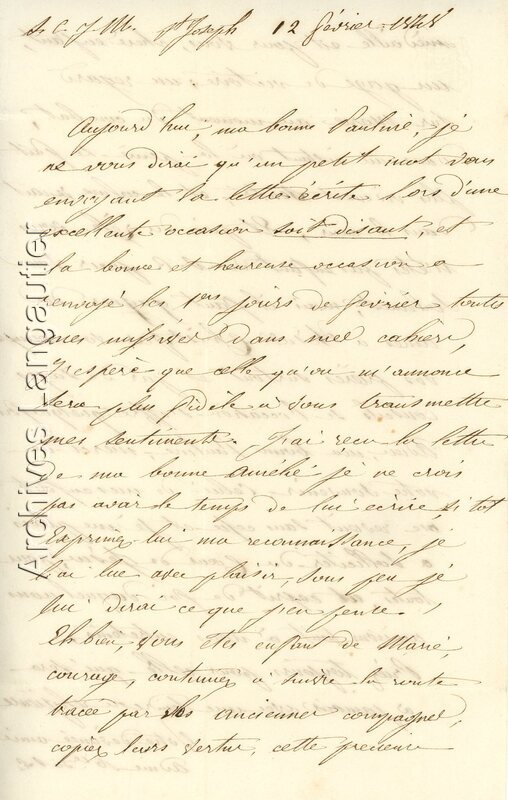 A. C. J. M. St Joseph 12 février 1848
Aujourd'hui, ma bonne Pauline, je
ne vous dirai qu'un petit mot vous
envoyant la lettre écrite lors d'une
excellente occasion soit disant, et
la bonne et heureuse occasion a
envoyé les 1ers jours de février toutes
mes missives dans mes cahiers,
J'espère que celle qu'on m'annonce
sera plus fidèle à vous transmettre
mes sentiments. J'ai reçu la lettre
de ma bonne Amélie je ne crois
pas avoir le temps de lui écrire si tôt
Exprimez lui ma reconnaissance, je
l'ai lue avec plaisir, sous peu je
lui dirai ce que j'en pense,
Eh bien, vous êtes enfant de Marie,
courage, continuez à suivre la route
tracée par vos anciennes compagnes,
copiez leurs vertus, cette précieuse
Archives Langautier